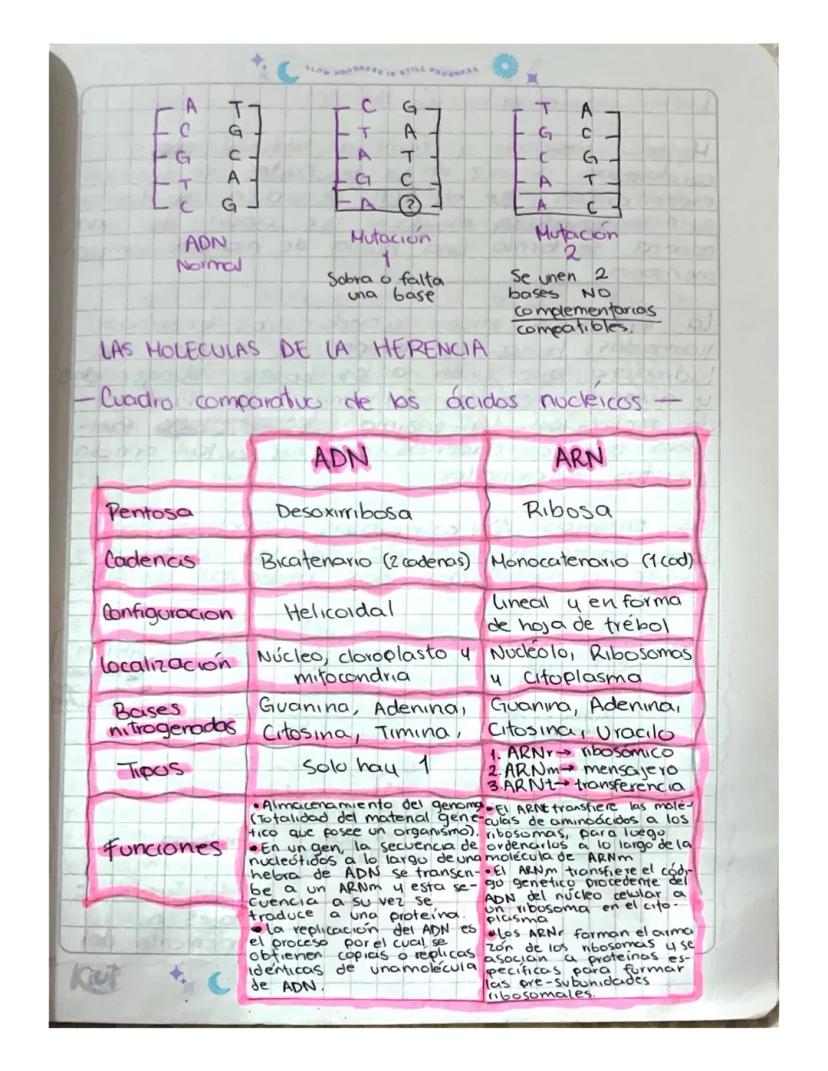 SLOW PROGRESS IS STILL PROGRESS
A T
C G
G C
T A
C G
ADN
Normal
C G
T A
A T
G C
A ?
Mutación
1
Sobra o falta
una base
T A
G C
C G
A T
A C
Mutación
2
Se unen 2
bases NO
complementarias
compatibles.
LAS MOLECULAS DE LA HERENCIA
- Cuadro comparativo de los ácidos nucléicos -
ADN ARN
Pentosa Desoxirribosa Ribosa
Cadenas Bicatenario (2 cadenas) Monocatenario (1 cad)
Configuracion Helicoidal Lineal y en forma
de hoja de trébol
Localización Núcleo, cloroplasto y
mitocondria
Nucléolo, Ribosomas
y Citoplasma
Bases
nitrogenadas
Guanina, Adenina,
Citosina, Timina,
Guanina, Adenina,
Citosina, Uracilo
Tipos Solo hay 1
1. ARNr→ ribosómico
2. ARNm→ mensajero
3. ARNt→ transferencia
Funciones
• Almacenamiento del genoma
(Totalidad del material gené-
tico que posee un organismo).
• En un gen, la secuencia de
nucleótidos a lo largo de una
hebra de ADN se transcri-
be a un ARNm y esta se-
cuencia a su vez se
traduce a una proteína.
• La replicación del ADN es
el proceso por el cual se
obtienen copias o replicas
idénticas de una molécula
de ADN.
• El ARNt transfiere las molé-
culas de aminoácidos a los
ribosomas, para luego
ordenarlos a lo largo de la
molécula de ARNm
• El ARNm transfiere el códi-
go genético procedente del
ADN del núcleo celular a
un ribosoma en el cito-
plasma
• Los ARNr forman el arma
zón de los ribosomas y se
asocian a proteínas es-
pecíficas para formar
las pre-subunidades
ribosomales.
Kiut